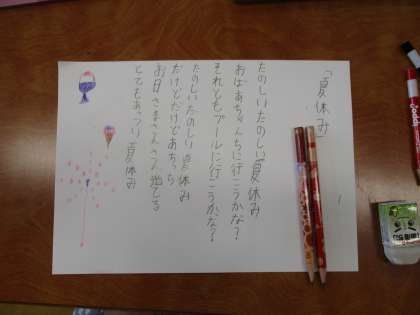 「夏休み」
たのしいたのしい夏休み
おばあちゃんちに行こうかな?
それともプールに行こうかな?
たのしいたのしい夏休み
だけどだけどあちっち
お日さまさんさん
とてもあっつい夏休み